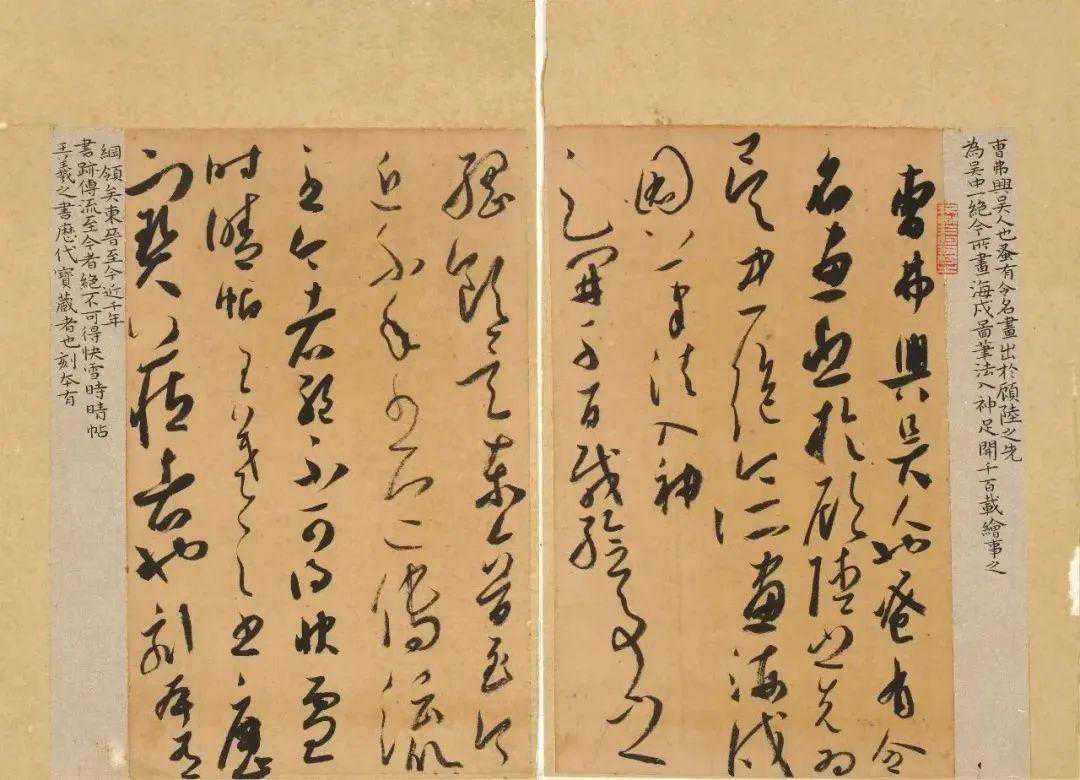 曹弗興吳人也蚤有令名畫出於顧陸之先
為吳中一絕今所畫海戍啚筆法入神足開千百載繪事之
曹弗興吳人也蚤有令
名畫出於顧陸之先為
吳中一絕今所畫海戍
圖筆法入神
足開千百載繪事之
綱領矣東晉至今
近千年書跡傳流
至今者絕不可得快雪
時晴帖王羲之書歷
代寶藏者也刻本有
綱領矣東晉至今近千年
書跡傳流至今者絕不可得快雪時晴帖
王羲之書歷代寶藏者也刻本有